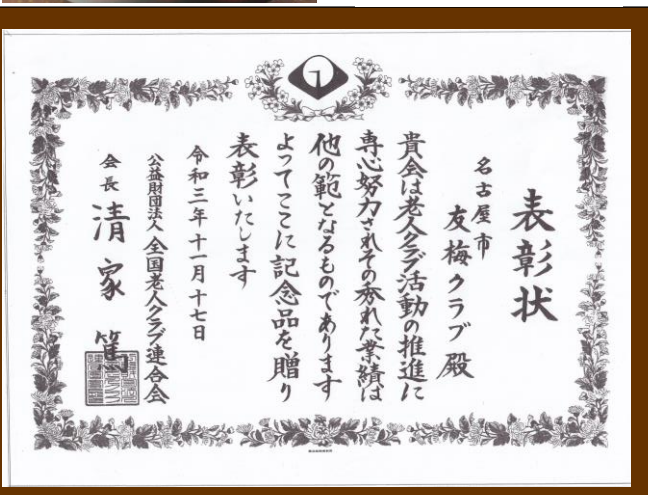 表彰状
名古屋市
友梅クラブ殿
貴会は老人クラブ活動の推進に
専心努力されその秀れた業績は
他の範となるものであります
よってここに記念品を贈り
表彰いたします
令和三年十一月十七日
公益財団法人 全国老人クラブ連合会
会長 清家篤